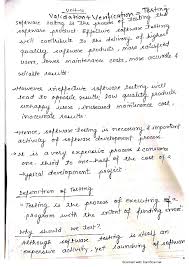 Validation + Verification & Testing
Software testing is the process of testing the
software product. Effective software testing
will contribute to the delivery of highest
quality software products, more satisfied
users, lower maintenance costs, more accurate &
reliable results.
However ineffective software testing will
lead to opposite results low quality products
unhappy users, increased maintenance cost,
inaccurate results.
Hence, software testing is necessary & important
activity of software development process.
It is a very expensive process & consume
one third to one-half of the cost of a
typical development project.
Definition of Testing
"Testing is the process of executing a
program with the intent of finding error."
Why should we test?
Although software testing is itself an
expensive activity, yet launching of software